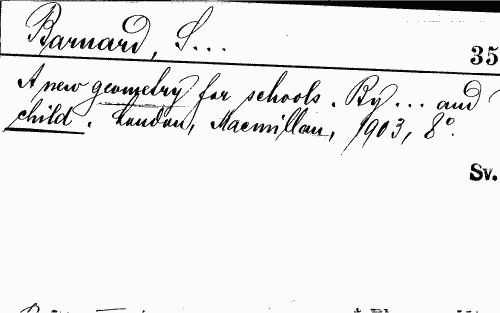 Barnard, S...
35
A new geometry for schools. By ... and
child. London, Macmillan, 1903, 8°.
Sv.